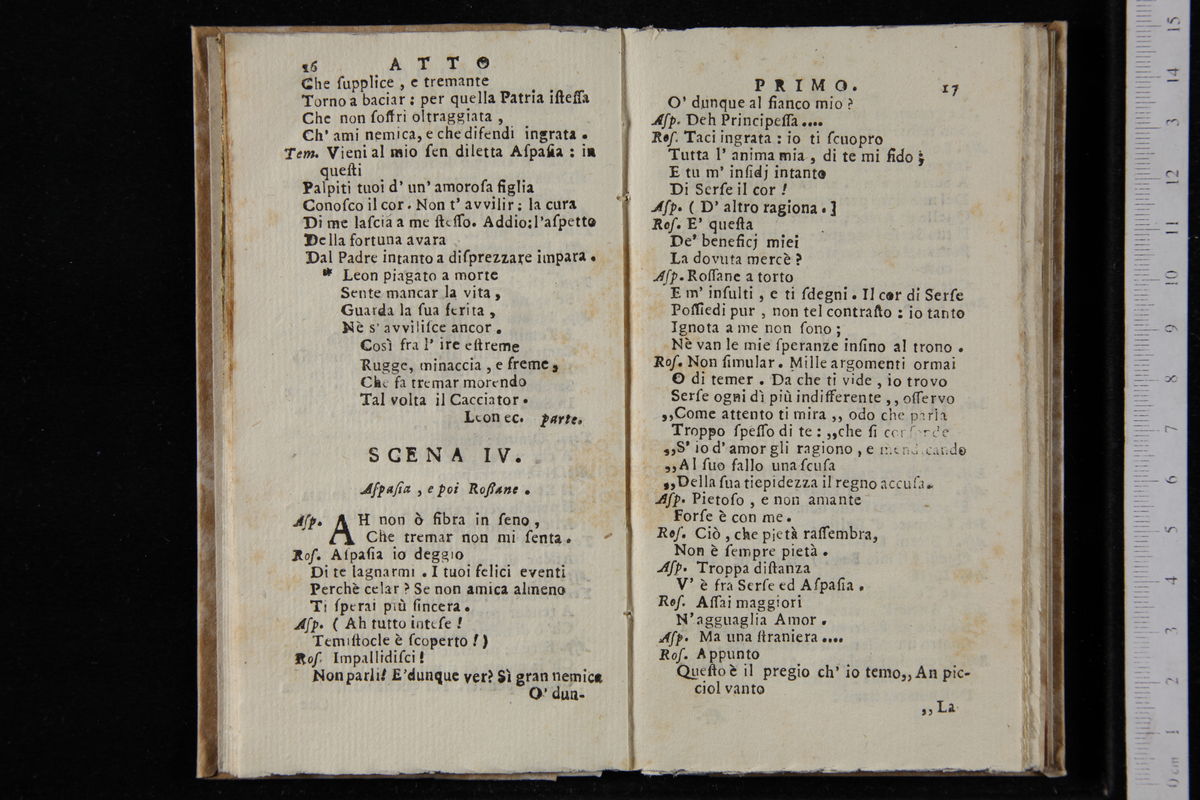 16 ATTO
Che ſupplice , e tremante
Torno a baciar : per quella Patria iſteſſa
Che non ſoffrì oltraggiata ,
Ch' ami nemica, e che difendi ingrata .
Tem. Vieni al mio ſen diletta Aſpaſia : in
queſti
Palpiti tuoi d' un' amoroſa figlia
Conoſco il cor . Non t' avvilir : la cura
Di me laſcia a me ſteſſo. Addio:l'aſpetto
Della fortuna avara
Dal Padre intanto a diſprezzare impara .
* Leon piagato a morte
Sente mancar la vita ,
Guarda la ſua ferita ,
Nè s' avviliſce ancor .
Così fra l' ire eſtreme
Rugge, minaccia , e freme,
Che fa tremar morendo
Tal volta il Cacciator .
Leon ec. parte.
SCENA IV.
Aſpaſia , e poi Roſſane .
Aſp. AH non ò fibra in ſeno ,
Che tremar non mi ſenta .
Roſ. Aſpaſia io deggio
Di te lagnarmi . I tuoi felici eventi
Perchè celar ? Se non amica almeno
Ti ſperai più ſincera .
Aſp. ( Ah tutto inteſe !
Temiſtocle è ſcoperto ! )
Roſ. Impallidiſci !
Non parli! E'dunque ver? Sì gran nemica
O' dun-
PRIMO. 17
O' dunque al fianco mio ?
Aſp. Deh Principeſſa ....
Roſ. Taci ingrata : io ti ſcuopro
Tutta l' anima mia , di te mi fido ;
E tu m' inſidj intanto
Di Serſe il cor !
Aſp. ( D' altro ragiona . ]
Roſ. E' queſta
De' beneficj miei
La dovuta mercè ?
Aſp. Roſſane a torto
E m' inſulti , e ti ſdegni . Il cor di Serſe
Poſſiedi pur , non tel contraſto : io tanto
Ignota a me non ſono ;
Nè van le mie ſperanze inſino al trono .
Roſ. Non ſimular . Mille argomenti ormai
O di temer . Da che ti vide , io trovo
Serſe ogni dì più indifferente ,, oſſervo
,,Come attento ti mira ,, odo che parla
Troppo ſpeſſo di te : ,,che ſi confonde
,,S' io d' amor gli ragiono , e mendicando
,,Al ſuo fallo una ſcuſa
,,Della ſua tiepidezza il regno accuſa.
Aſp. Pietoſo , e non amante
Forſe è con me .
Roſ. Ciò , che pietà raſſembra,
Non è ſempre pietà .
Aſp. Troppa diſtanza
V' è fra Serſe ed Aſpaſia .
Roſ. Aſſai maggiori
N'agguaglia Amor .
Aſp. Ma una ſtraniera ....
Roſ. Appunto
Queſto è il pregio ch' io temo,, An pic-
ciol vanto
,, La